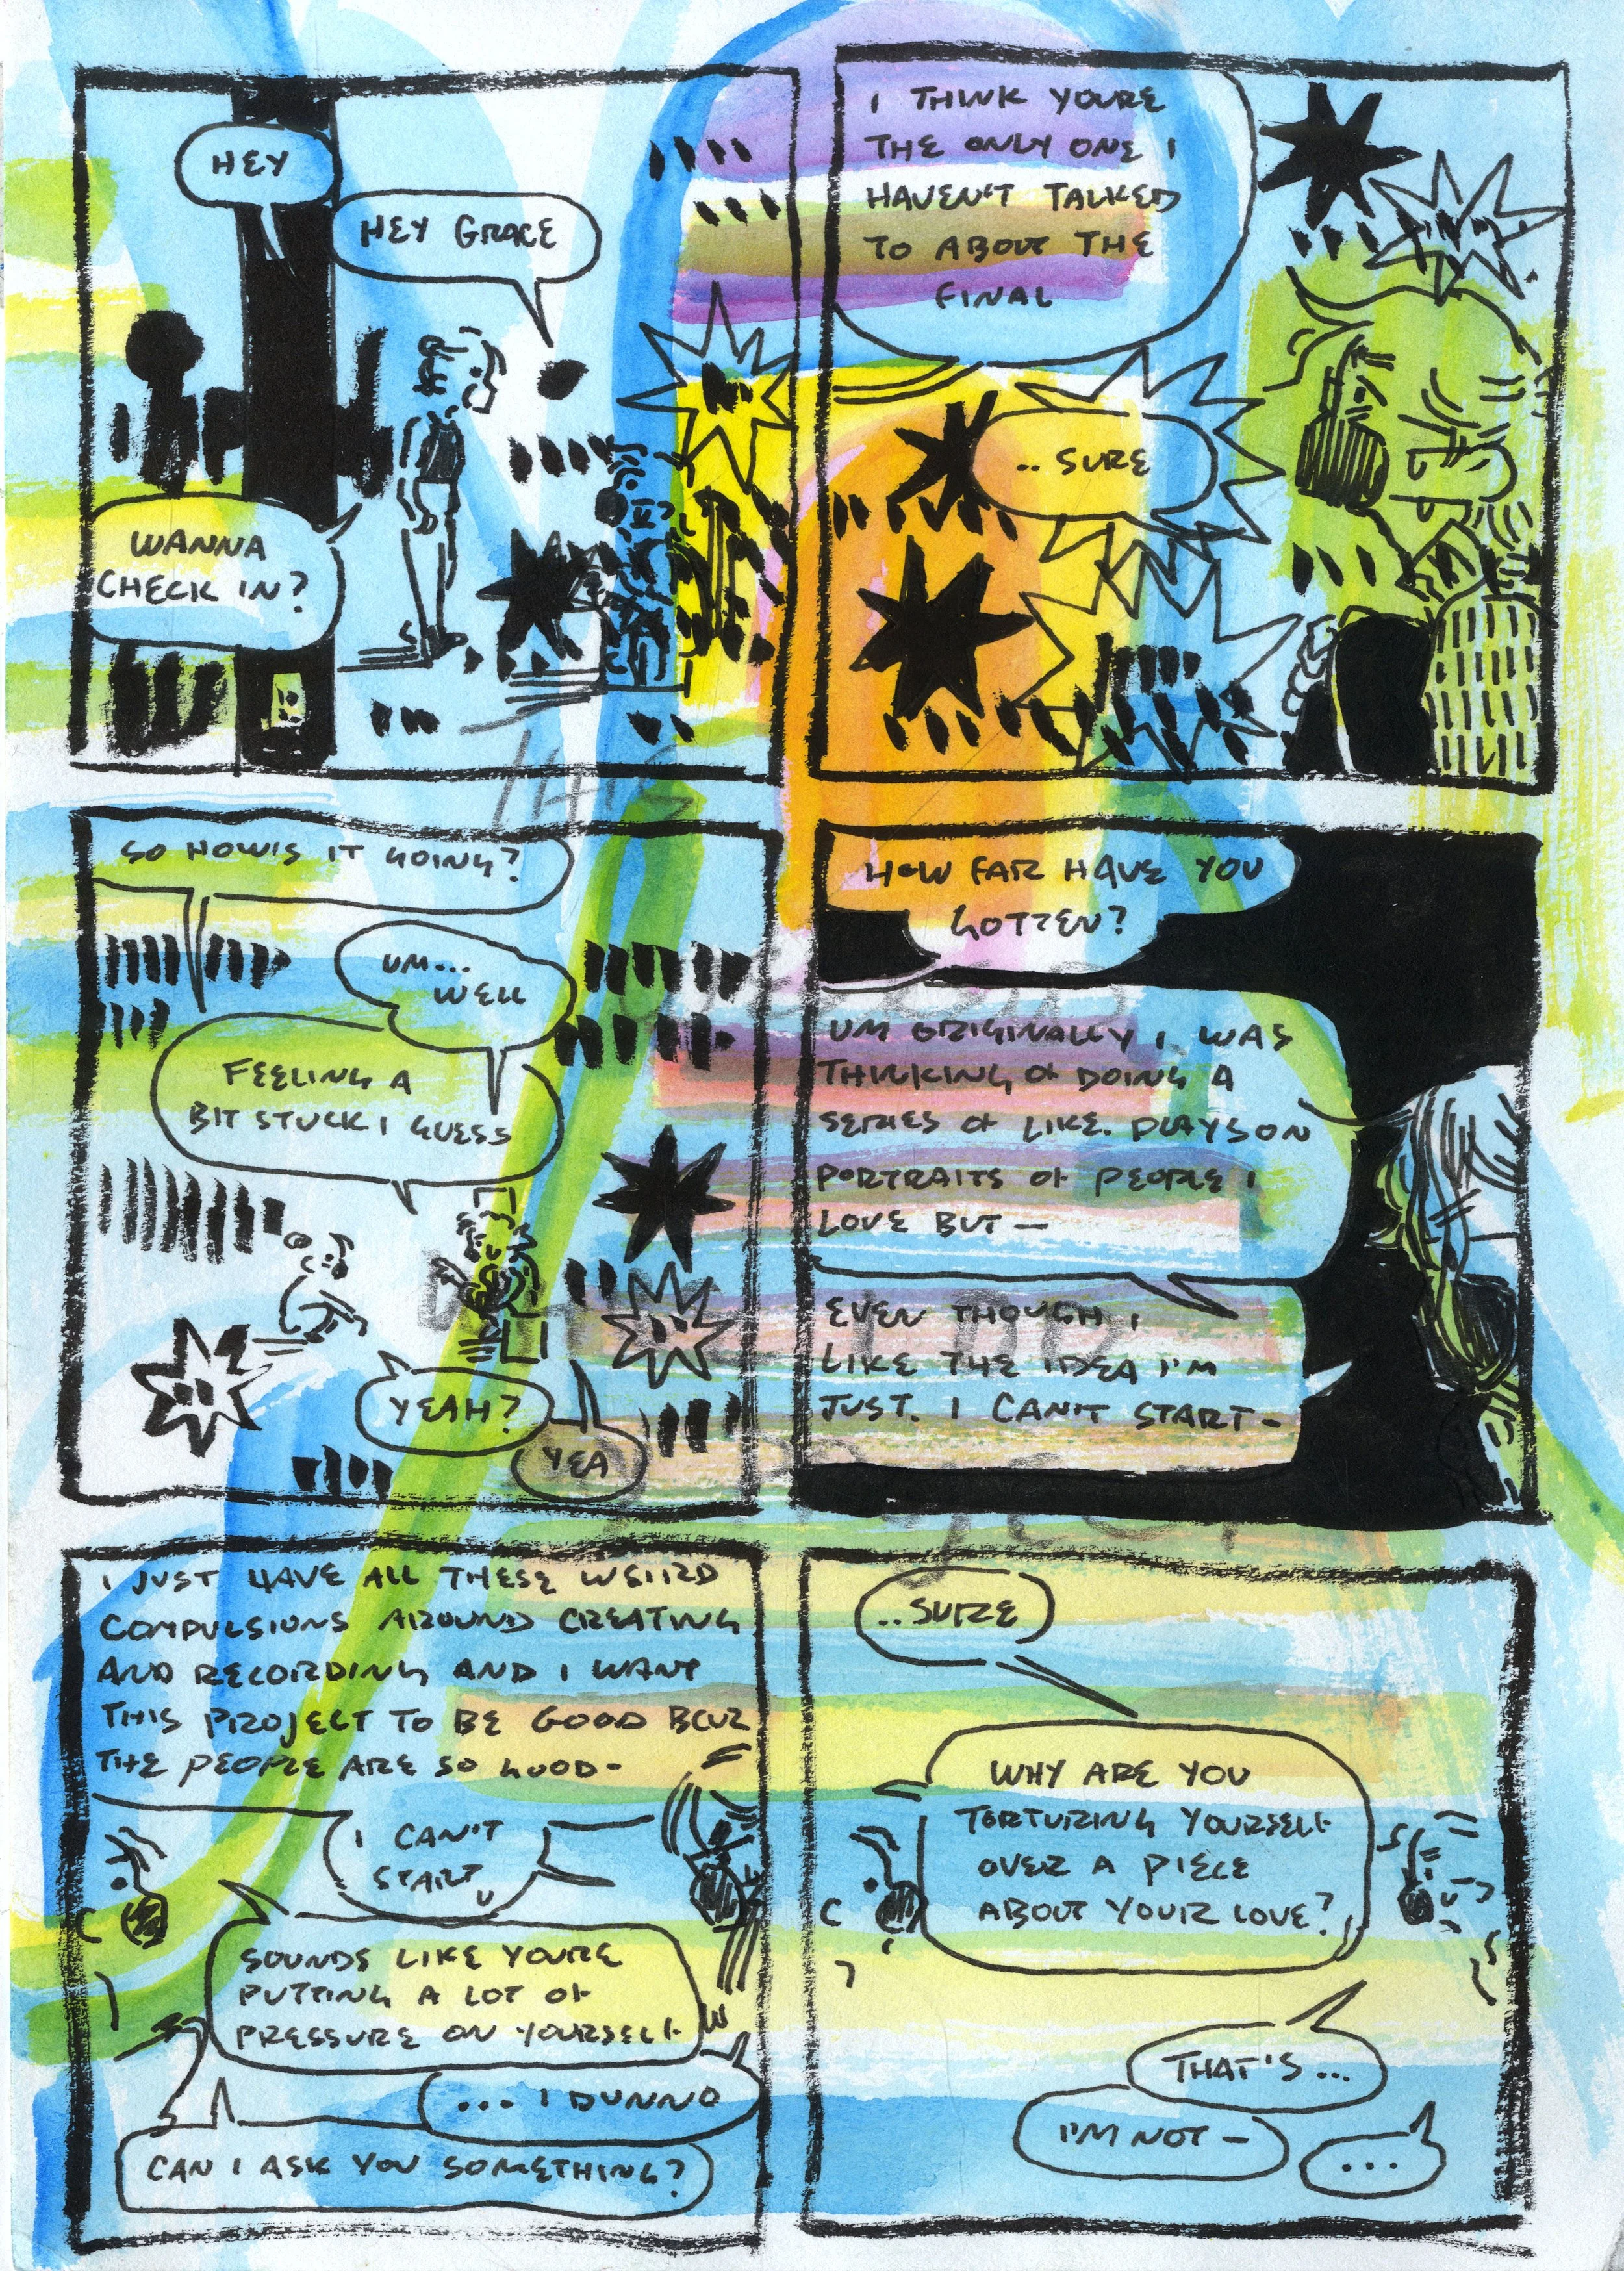 HEY
HEY GRACE
WANNA
CHECK IN?
I THINK YOURE
THE ONLY ONE I
HAVEN'T TALKED
TO ABOUT THE
FINAL
.. SURE
SO HOW'S IT GOING?
UM...
WELL
FEELING A
BIT STUCK I GUESS
YEAH?
YEA
HOW FAR HAVE YOU
GOTTEN?
UM ORIGINALLY I WAS
THINKING OF DOING A
SERIES OF LIKE. PLAYS ON
PORTRAITS OF PEOPLE I
LOVE BUT —
EVEN THOUGH I
LIKE THE IDEA I'M
JUST. I CAN'T START-
I JUST HAVE ALL THESE WEIIRD
COMPULSIONS AROUND CREATING
AND RECORDING AND I WANT
THIS PROJECT TO BE GOOD BCUZ
THE PEOPLE ARE SO GOOD-
I CAN'T
START
SOUNDS LIKE YOURE
PUTTING A LOT OF
PRESSURE ON YOURSELF
... I DUNNO
CAN I ASK YOU SOMETHING?
..SURE
WHY ARE YOU
TORTURING YOURSELF
OVER A PIECE
ABOUT YOUR LOVE?
THAT'S...
I'M NOT —
...
THIS